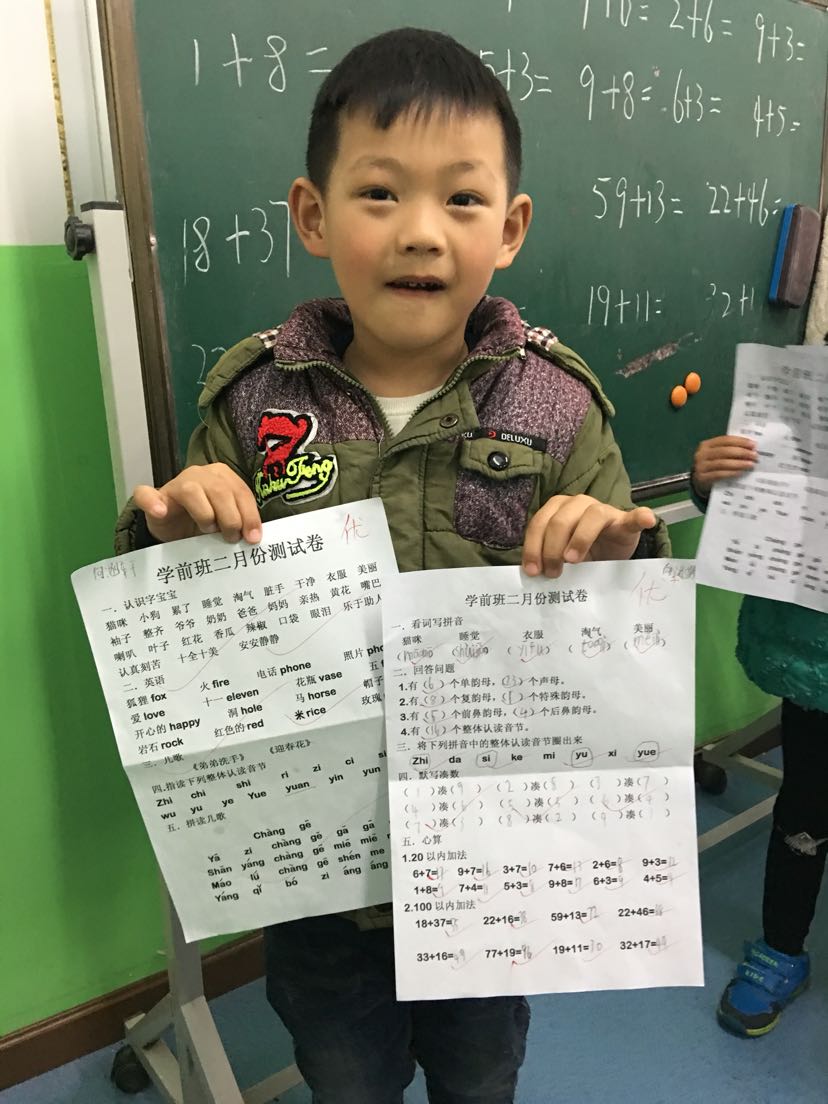 1+8=
5+3=
2+6=
9+3=
9+8=
6+3=
4+5=
18+37
59+13=
22+46=
19+11=
7
DELUXU
优
学前班二月份测试卷
一. 认识字宝宝
猫咪 小狗 累了 睡觉 淘气 脏手 干净 衣服 美丽
袖子 整齐 爷爷 奶奶 爸爸 妈妈 亲热 黄花 嘴巴
喇叭 叶子 红花 香瓜 辣椒 口袋 眼泪 乐于助人
认真刻苦 十全十美 安安静静
二. 英语
狐狸 fox 火 fire 电话 phone 照片
爱 love 十一 eleven 花瓶 vase 五
开心的 happy 洞 hole 马 horse 帽子
岩石 rock 红色的 red 米 rice 玫瑰
三. 儿歌 《弟弟洗手》 《迎春花》
四.指读下列整体认读音节
Zhi chi shi ri zi ci si
wu yu ye Yue yuan yin yun
五. 拼读儿歌
Chàng gē
Yā zi chàng gē gā gā
Shān yáng chàng gē miē miē
Māo lú chàng gē shén me
Yáng qǐ bó zi áng áng
优
学前班二月份测试卷
一. 看词写拼音
猫咪 睡觉 衣服 淘气 美丽
二. 回答问题
1.有(6)个单韵母,(23)个声母。
2.有(8)个复韵母,(1)个特殊韵母。
3.有(5)个前鼻韵母,(4)个后鼻韵母。
4.有(16)个整体认读音节。
三. 将下列拼音中的整体认读音节圈出来
Zhi da si ke mi yu xi yue
四. 默写凑数
(1)凑(9) (2)凑(8) (3)凑(7)
(4)凑(6) (5)凑(5) (6)凑(4)
(7)凑(3) (8)凑(2) (9)凑(1)
五. 心算
1.20 以内加法
6+7=13 9+7=16 3+7=10 7+6=13 2+6=8 9+3=12
1+8=9 7+4=11 5+3=8 9+8=17 6+3=9 4+5=9
2.100 以内加法
18+37=55 22+16=38 59+13=72 22+46=68
33+16=49 77+19=96 19+11=30 32+17=49
学前班二